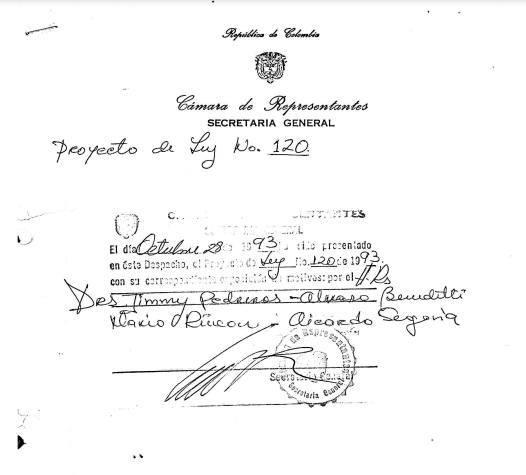 República de Colombia
Cámara de Representantes
SECRETARIA GENERAL
Proyecto de Ley No. 120.
El día Octubre 28 de 1993 ha sido presentado
en este Despacho, el Proyecto de Ley No. 120 de 1993.
con su correspondiente exposición de motivos: por el H. Rs
Drs Jimmy Pedreros - Alvaro Benedetti
Mario Rincon - Ricardo Segovia
Secretario General
Secretaria General